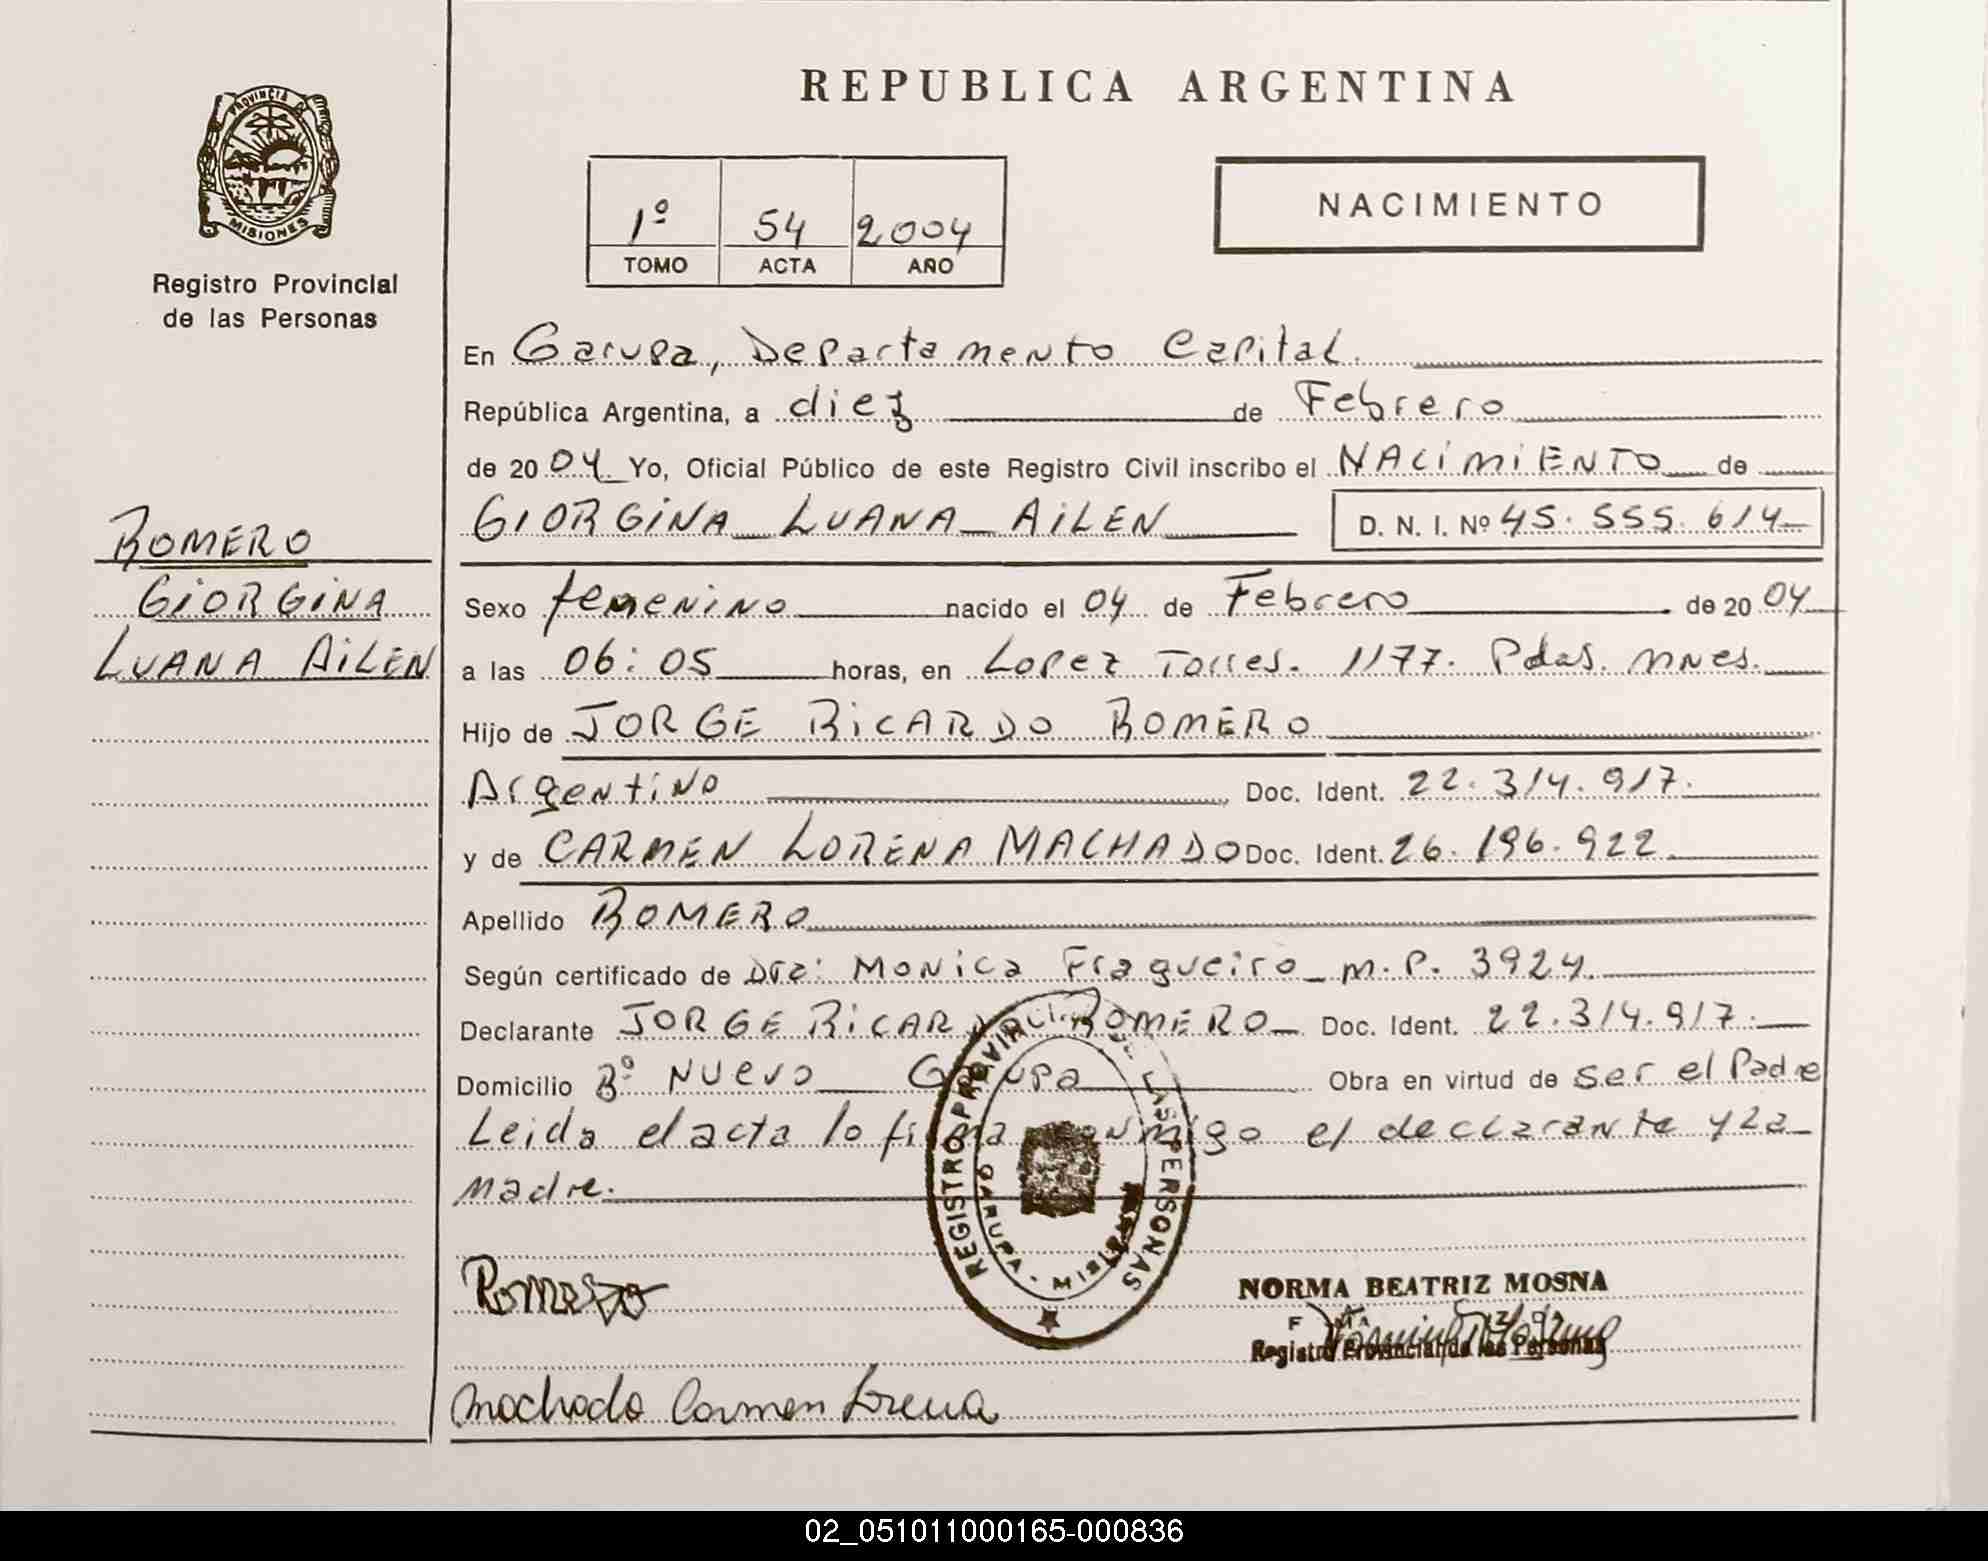 REPUBLICA ARGENTINA
PROVINCIA DE MISIONES
Registro Provincial
de las Personas
1º 54 2004
TOMO ACTA AÑO
NACIMIENTO
En Garupa, Departamento Capital.
República Argentina, a diez de Febrero
de 2004 Yo, Oficial Público de este Registro Civil inscribo el NACIMIENTO de
GIORGINA LUANA AILEN D. N. I. Nº 45.555.614
ROMERO
GIORGINA
LUANA AILEN
Sexo femenino nacido el 04 de Febrero de 2004
a las 06:05 horas, en Lopez Torres. 1177. Pdas. Mnes.
Hijo de JORGE RICARDO ROMERO
Argentino Doc. Ident. 22.314.917.
y de CARMEN LORENA MACHADO Doc. Ident. 26.196.922
Apellido ROMERO
Según certificado de Dra: Monica Fragueiro M.P. 3924.
Declarante JORGE RICARDO ROMERO Doc. Ident. 22.314.917.
Domicilio Bº Nuevo Garupa Obra en virtud de ser el Padre
Leida el acta lo firma conmigo el declarante y la
madre.
REGISTRO PROVINCIAL DE LAS PERSONAS
GARUPA - MISIONES
Romero
NORMA BEATRIZ MOSNA
Registro Provincial de las Personas
Machado Carmen Lorena
02_051011000165-000836